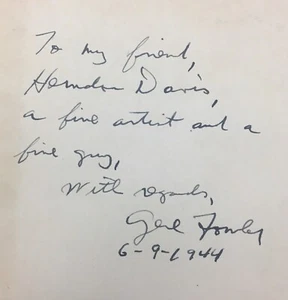 To my friend,
Herndon Davis,
a fine artist and a
fine guy,
With regards,
Gene Fowler
6-9-1944